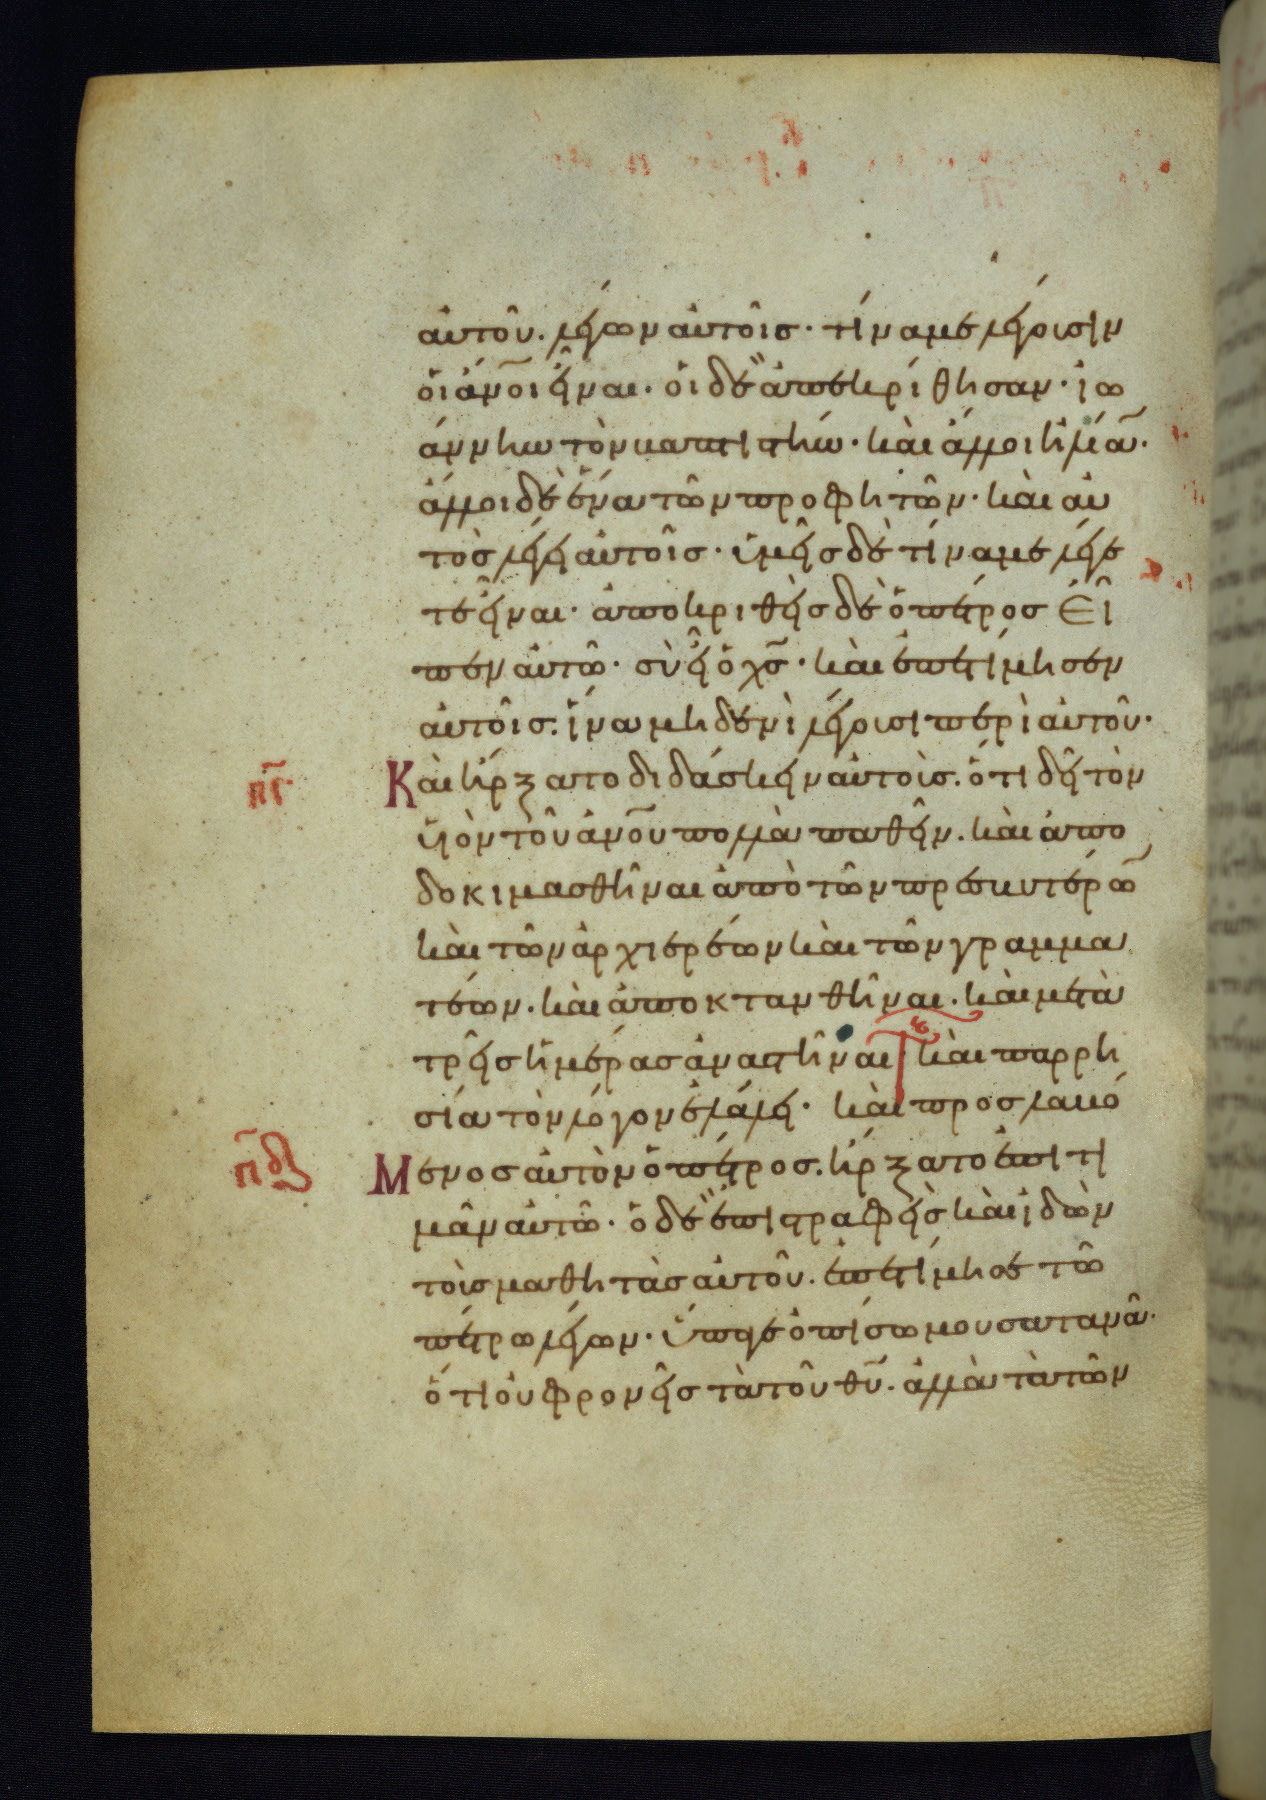 αὐτοῦ. λέγων αὐτοῖς· τίνα με λέγουσιν
οἱ ἄν̅οι εἶναι. οἱ δὲ ἀπεκρίθησαν· ἰω
άννην τὸν βαπτιστήν· καὶ ἄλλοι ἠλίαν̅.
ἄλλοι δὲ ἕνα τῶν προφητῶν· καὶ αὐ
τὸς λέγει αὐτοῖς· ὑμεῖς δὲ τίνα με λέγε
τε εἶναι· ἀποκριθεὶς δὲ ὁ πέτρος εἶ
πεν αὐτῶ· σὺ εἶ ὁ χς̅· καὶ ἐπετίμησεν
αὐτοῖς. ἵνα μηδενὶ λέγουσι περὶ αὐτοῦ·
πγ̅· Καὶ ἤρξατο διδάσκειν αὐτοὺς. ὅτι δεῖ τὸν
υἱὸν τοῦ ἀνο̅υ πολλὰ παθεῖν. καὶ ἀπο
δοκιμασθῆναι ἀπὸ τῶν πρεσβυτέρω̅
καὶ τῶν ἀρχιερέων καὶ τῶν γραμμα
τέων. καὶ ἀποκτανθῆναι. καὶ μετὰ
τρεῖς ἡμέρας ἀναστῆναι καὶ παρρη
σία τὸν λόγον ἐλάλει· καὶ προσλαβό
πδ̅ Μενος αὐτὸν ὁ πέτρος. ἤρξατο ἐπιτι
μᾶν αὐτῶ· ὁ δὲ ἐπιστραφεὶς καὶ ἰδὼν
τοὺς μαθητὰς αὐτοῦ. ἐπετίμησε τῶ
πέτρω λέγων. ὕπαγε ὀπίσω μου σατανᾶ·
ὅτι οὐ φρονεῖς τὰ τοῦ θυ̅. ἀλλὰ τὰ τῶν